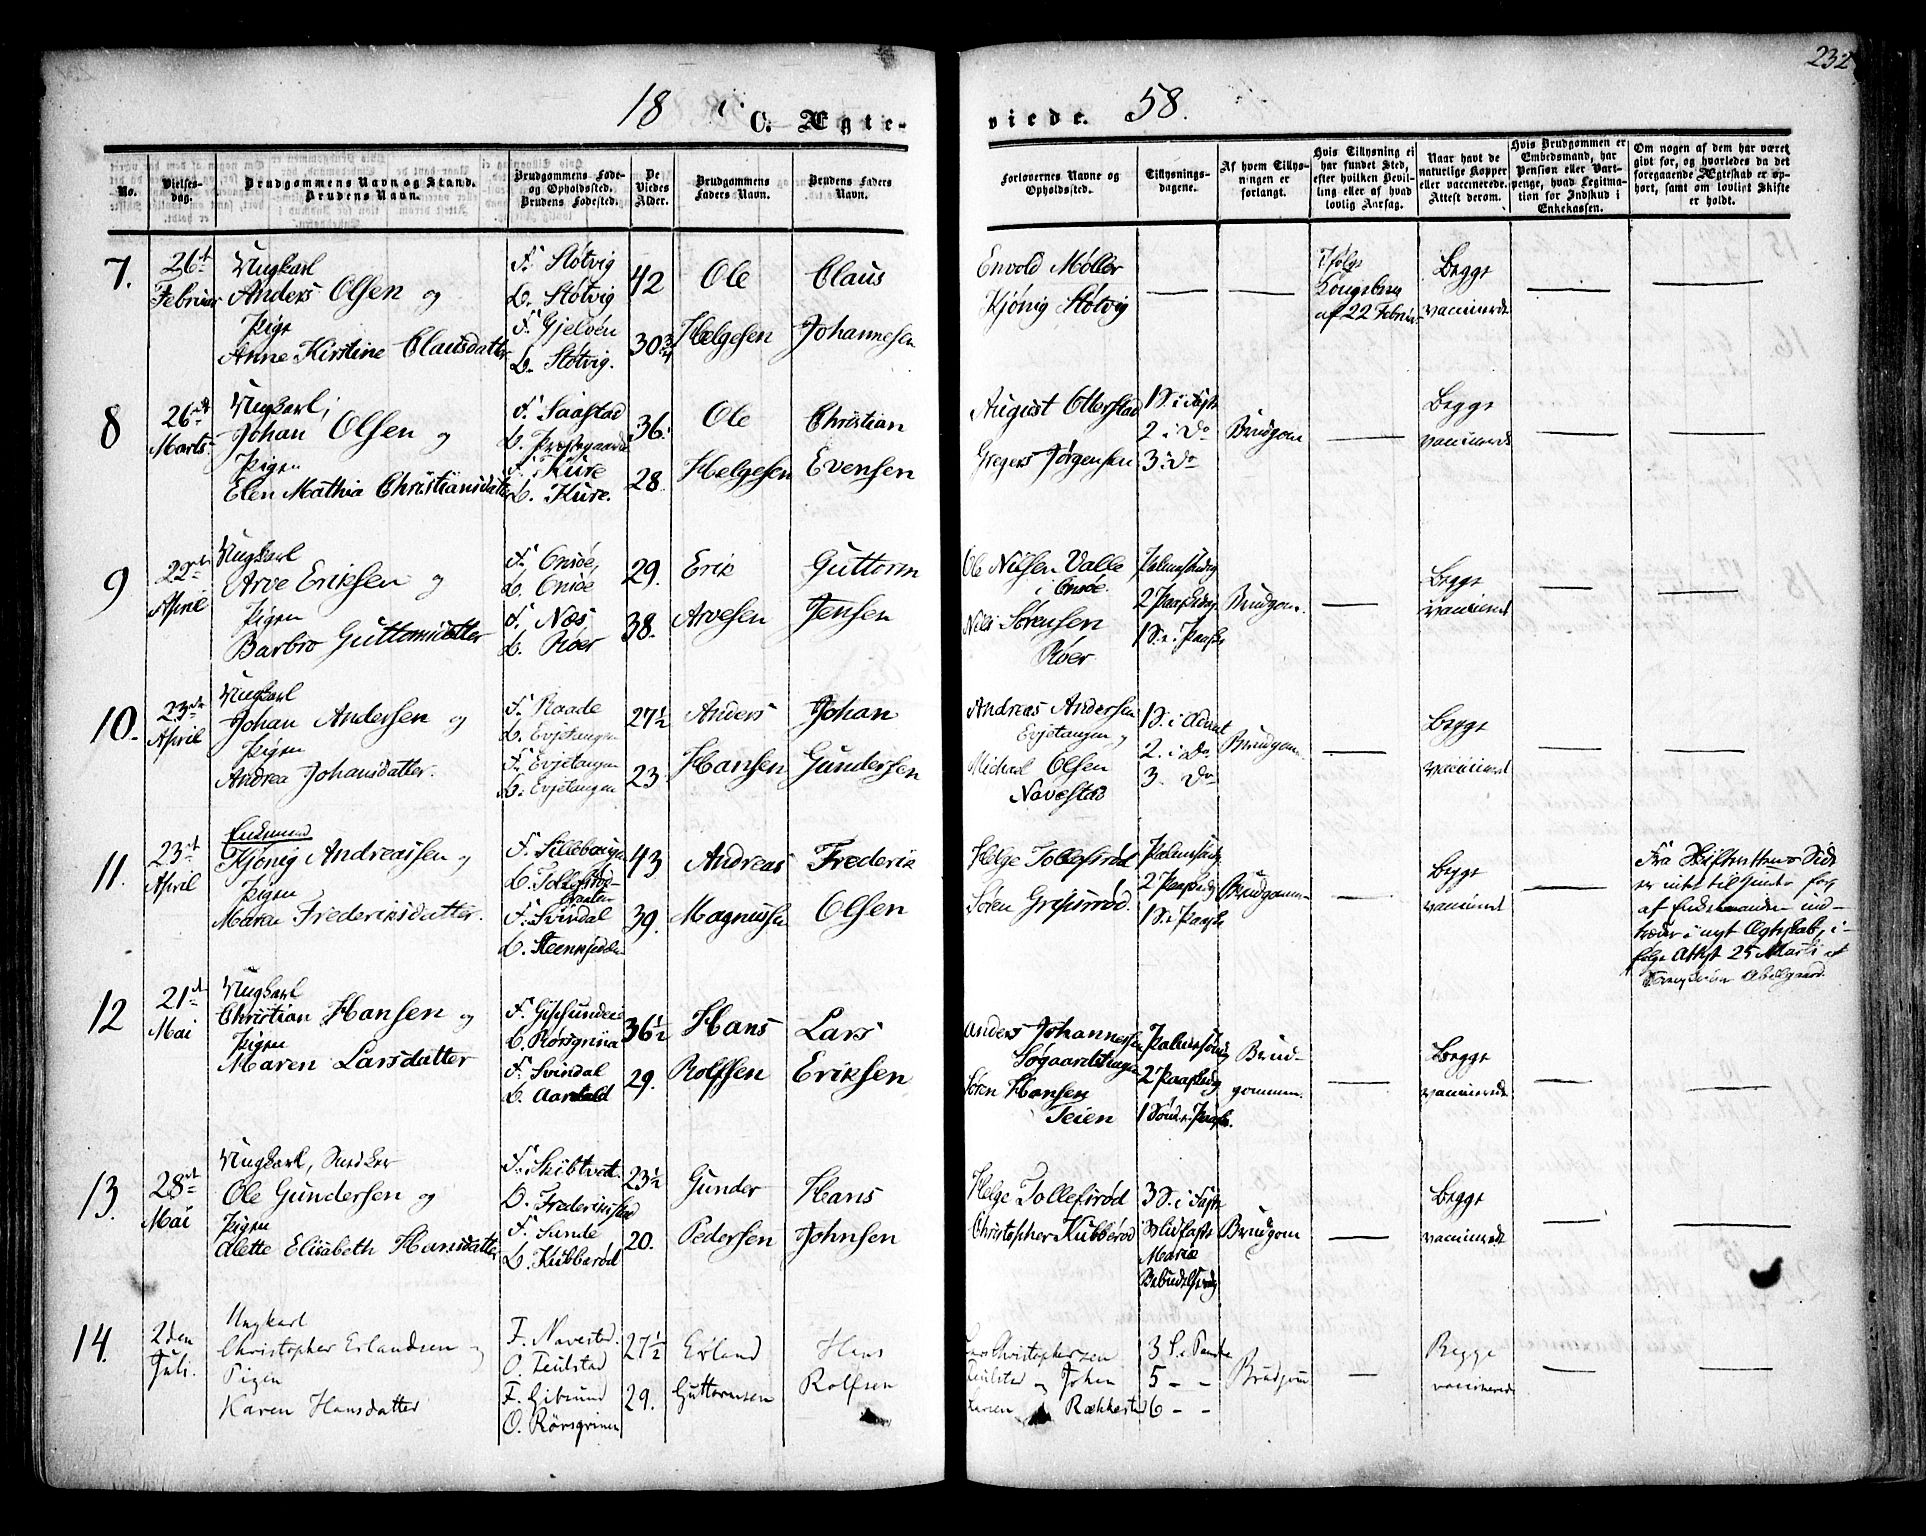 232
18 58.
C. Ægteviede.
No.
Vielsesdag.
Brudgommens Navn og Stand.
Brudens Navn.
Brudgommens Føde- og Opholdssted.
Brudens Fødested.
De Viedes Alder.
Brudgommens Faders Navn.
Brudens Faders Navn.
Forlovernes Navne og Opholdssted.
Tillysningsdagene.
Af hvem Tillysningen er forlangt.
Hvis Tillysning ei har fundet Sted, efter hvilken Bevilling eller af hvad lovlig Aarsag.
Naar havt de naturlige Kopper eller vaccinerede. Attest derom.
Hvis Brudgommen er Embedsmand, har Pension eller Vartpenge, hvad Legitimation for Indskud i Enkekassen.
Om nogen af dem har været givt før, og hvorledes da det foregaaende Ægteskab er ophørt, samt om lovligt Skifte er holdt.
7. 26de Februar
Ungkarl
Anders Olsen og
Pige
Anne Kirstine Clausdatter
F. Støtvig
O. Støtvig
F. Gjelvén
O. Støtvig.
42
30 3/4
Ole Helgesen
Claus Johannesen
Envold Møller
Kjönig Støtvig
Ifølge Kongebrev af 22 Februar
Begge vaccinerede
8 26de Marts
Ungkarl,
Johan Olsen og
Pigen
Elen Mathia Christiansdatter
F. Saastad
O. Præstegaarden
F. Kure
O. Kure.
36.
28.
Ole Helgesen
Christian Evensen
August Otterstad
Gregers Jørgensen
1 S. i Faste
2 i Do
3. Do
Brudgom
Begge vaccinerede
9 22de April
Ungkarl
Arve Eriksen og
Pigen
Barbro Guttormsdatter
F. Onsöe,
O. Onsöe
F. Næs
O. Röer
29.
38.
Erik Arvesen
Guttorm Jensen
Ole Nilsen Valle
i Onsöe.
Nils Sörensen
Röer
Palmesöndg
2 Paaskedag
1 S. i Paaske
Brudgom.
Begge vaccineret
10. 23de April
Ungkarl
Johan Andersen og
Pigen
Andrea Johansdatter.
F. Raade
O. Evjetangen
F. Evjetangen
O. Evjetangen
27 1/2
23.
Anders Hansen
Johan Gundersen
Andreas Andersen
Evjetangen og
Michael Olsen
Navestad
1 S. i Advent
2. i Do
3. Do
Brudgom.
Begge vaccineret
11. 23de April
Enkemand
Kjönig Andreassen og
Pigen
Maren Frederiksdatter.
F. Sillebaugen
O. Tollefsrød
F. Svindal
43
39.
Andreas Magnussen
Frederik Olsen
Helge Tollefsrød
Søren Grisurrød.
Palmesöndg
2 Paaskedg
1 S. i Paaske
Brudgommen
Begge vaccineret
Fra Skifterettens Side
er intet til Hinder for
at Enkemanden ind-
træder i nyt Ægteskab, i-
følge Attest 25 Marts af
12 21de Mai
Ungkarl
Christian Hansen og
Pigen
Maren Larsdatter
O. Rörsgriina
F. Svindal
36 1/2
29.
Hans Rolfsen
Lars Eriksen
Anders Johannessen
Søgaardstangen
Søren Hansen
Teien
Palmesöndg
2 Paaskedg
1 Sönd. i Paaske.
Brudgommen.
Begge vaccinerede
13. 28de Mai
Ungkarl, Snedker
Ole Gundersen og
Pigen
Alette Elisabeth Hansdatter
F. Skibtvet
O. Frederikstad
F. Sunde
O. Kubberød
23 1/2
20.
Gunder Pedersen
Hans Johnsen
Helge Tollefsrød
Christopher Kubberød
3 S. i Faste
Midfaste
Mariæ
Bebudelsesdg
Brudgom
Begge vaccinerede
14. 2den Juli.
Ungkarl
Christopher Erlandsen og
Pigen
Karen Hansdatter
F. Navestad.
O. Teulstad
F. Gibsund
O. Rörsgrinen
27 1/2
29.
Erland Guttormsen
Hans Rolfsen
Lars Christophersen
Teulstad og Johan
Larsen Rækkestad
3 S. i Faste
5 - -
6 - -
Brudgom
Begge vaccinerede